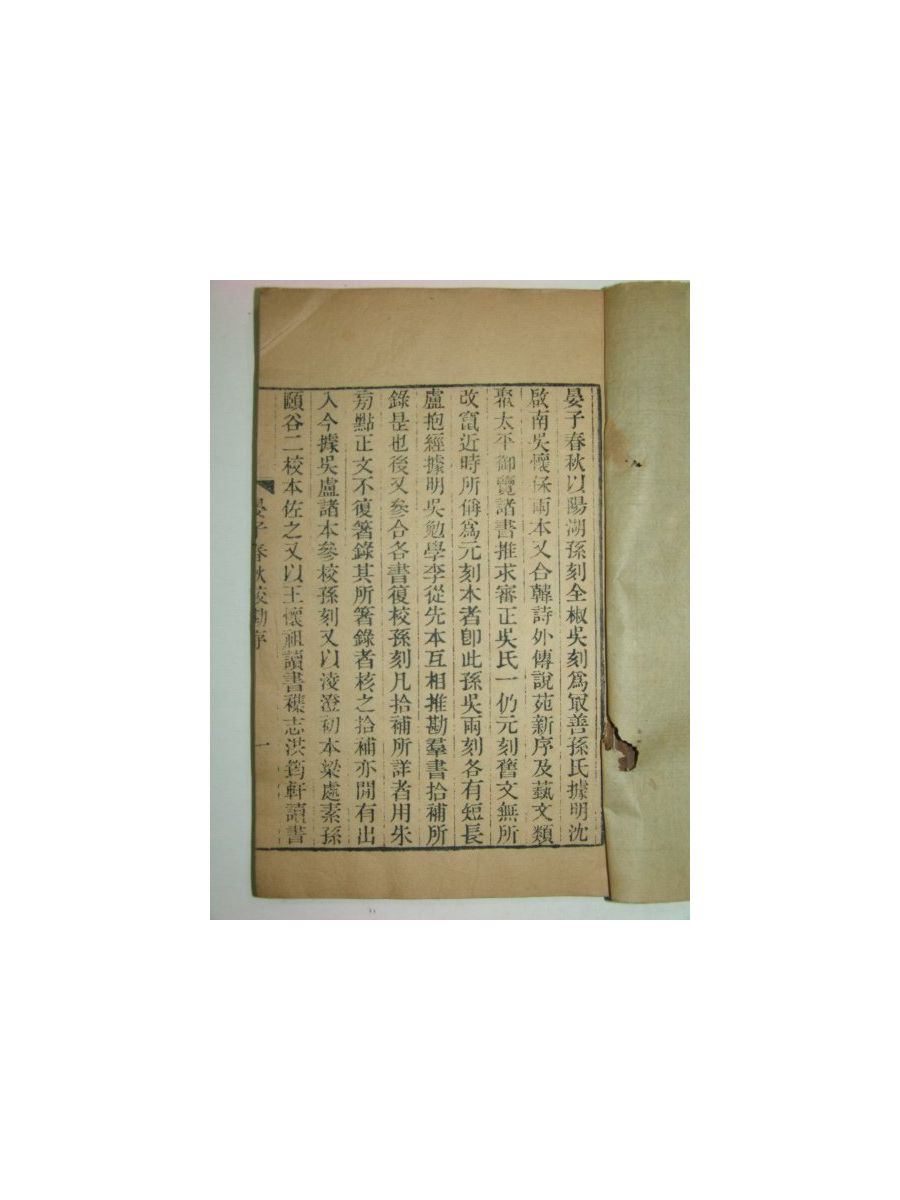 晏子春秋以陽湖孫刻全椒吳刻爲㝡善孫氏據明沈
啟南吳懷保兩本又合韓詩外傳說苑新序及蓺文類
聚太平御覽諸書推求審正吳氏一仍元刻舊文無所
改竄近時所偁爲元刻本者卽此孫吳兩刻各有短長
盧抱經據明吳勉學李從先本互相推勘羣書拾補所
錄是也後又參合各書復校孫刻凡拾補所詳者用朱
㫄點正文不復箸錄其所箸錄者核之拾補亦閒有出
入今據吳盧諸本參校孫刻又以淩澄初本梁處素孫
頤谷二校本佐之又以王懷祖讀書襍志洪筠軒讀書
晏子春秋校勘序
一